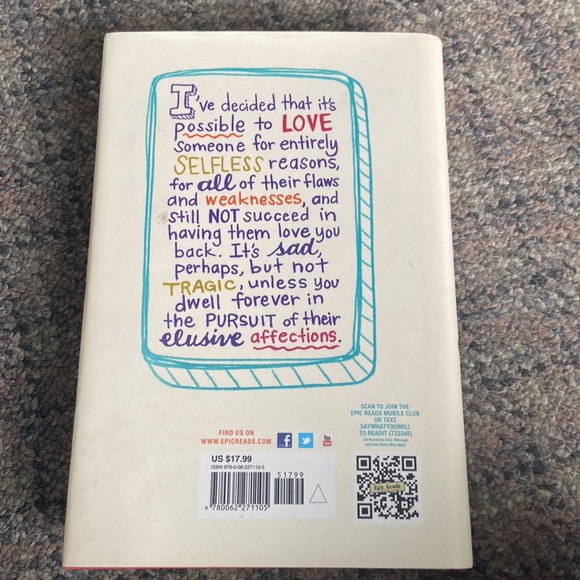 I've decided that it's
possible to LOVE
someone for entirely
SELFLESS reasons,
for all of their flaws
and weaknesses, and
still NOT succeed in
having them love you
back. It's sad,
perhaps, but not
TRAGIC, unless you
dwell forever in
the PURSUIT of their
elusive affections.
SCAN TO JOIN THE
EPIC READS MOBILE CLUB
OR TEXT
SAYWHATYOUWILL
TO READIT (732348)
US Residents Only. Message
and Data Rates May Apply.
FIND US ON
WWW.EPICREADS.COM
f
You
US $17.99
ISBN 978-0-06-227110-5
51799
9 780062 271105
Epic Reads